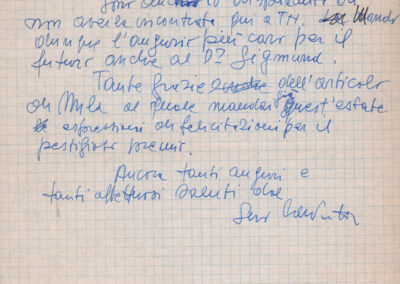 non averla incontrata qui a TN. Mando
dunque l'augurio più caro per il
futuro anche al Dr Sigmund.
Tante grazie dell'articolo
di Mila al quale mandai già quest'estate
espressioni di felicitazioni per il
prestigioso premio.
Ancora tanti auguri e
tanti affettuosi saluti